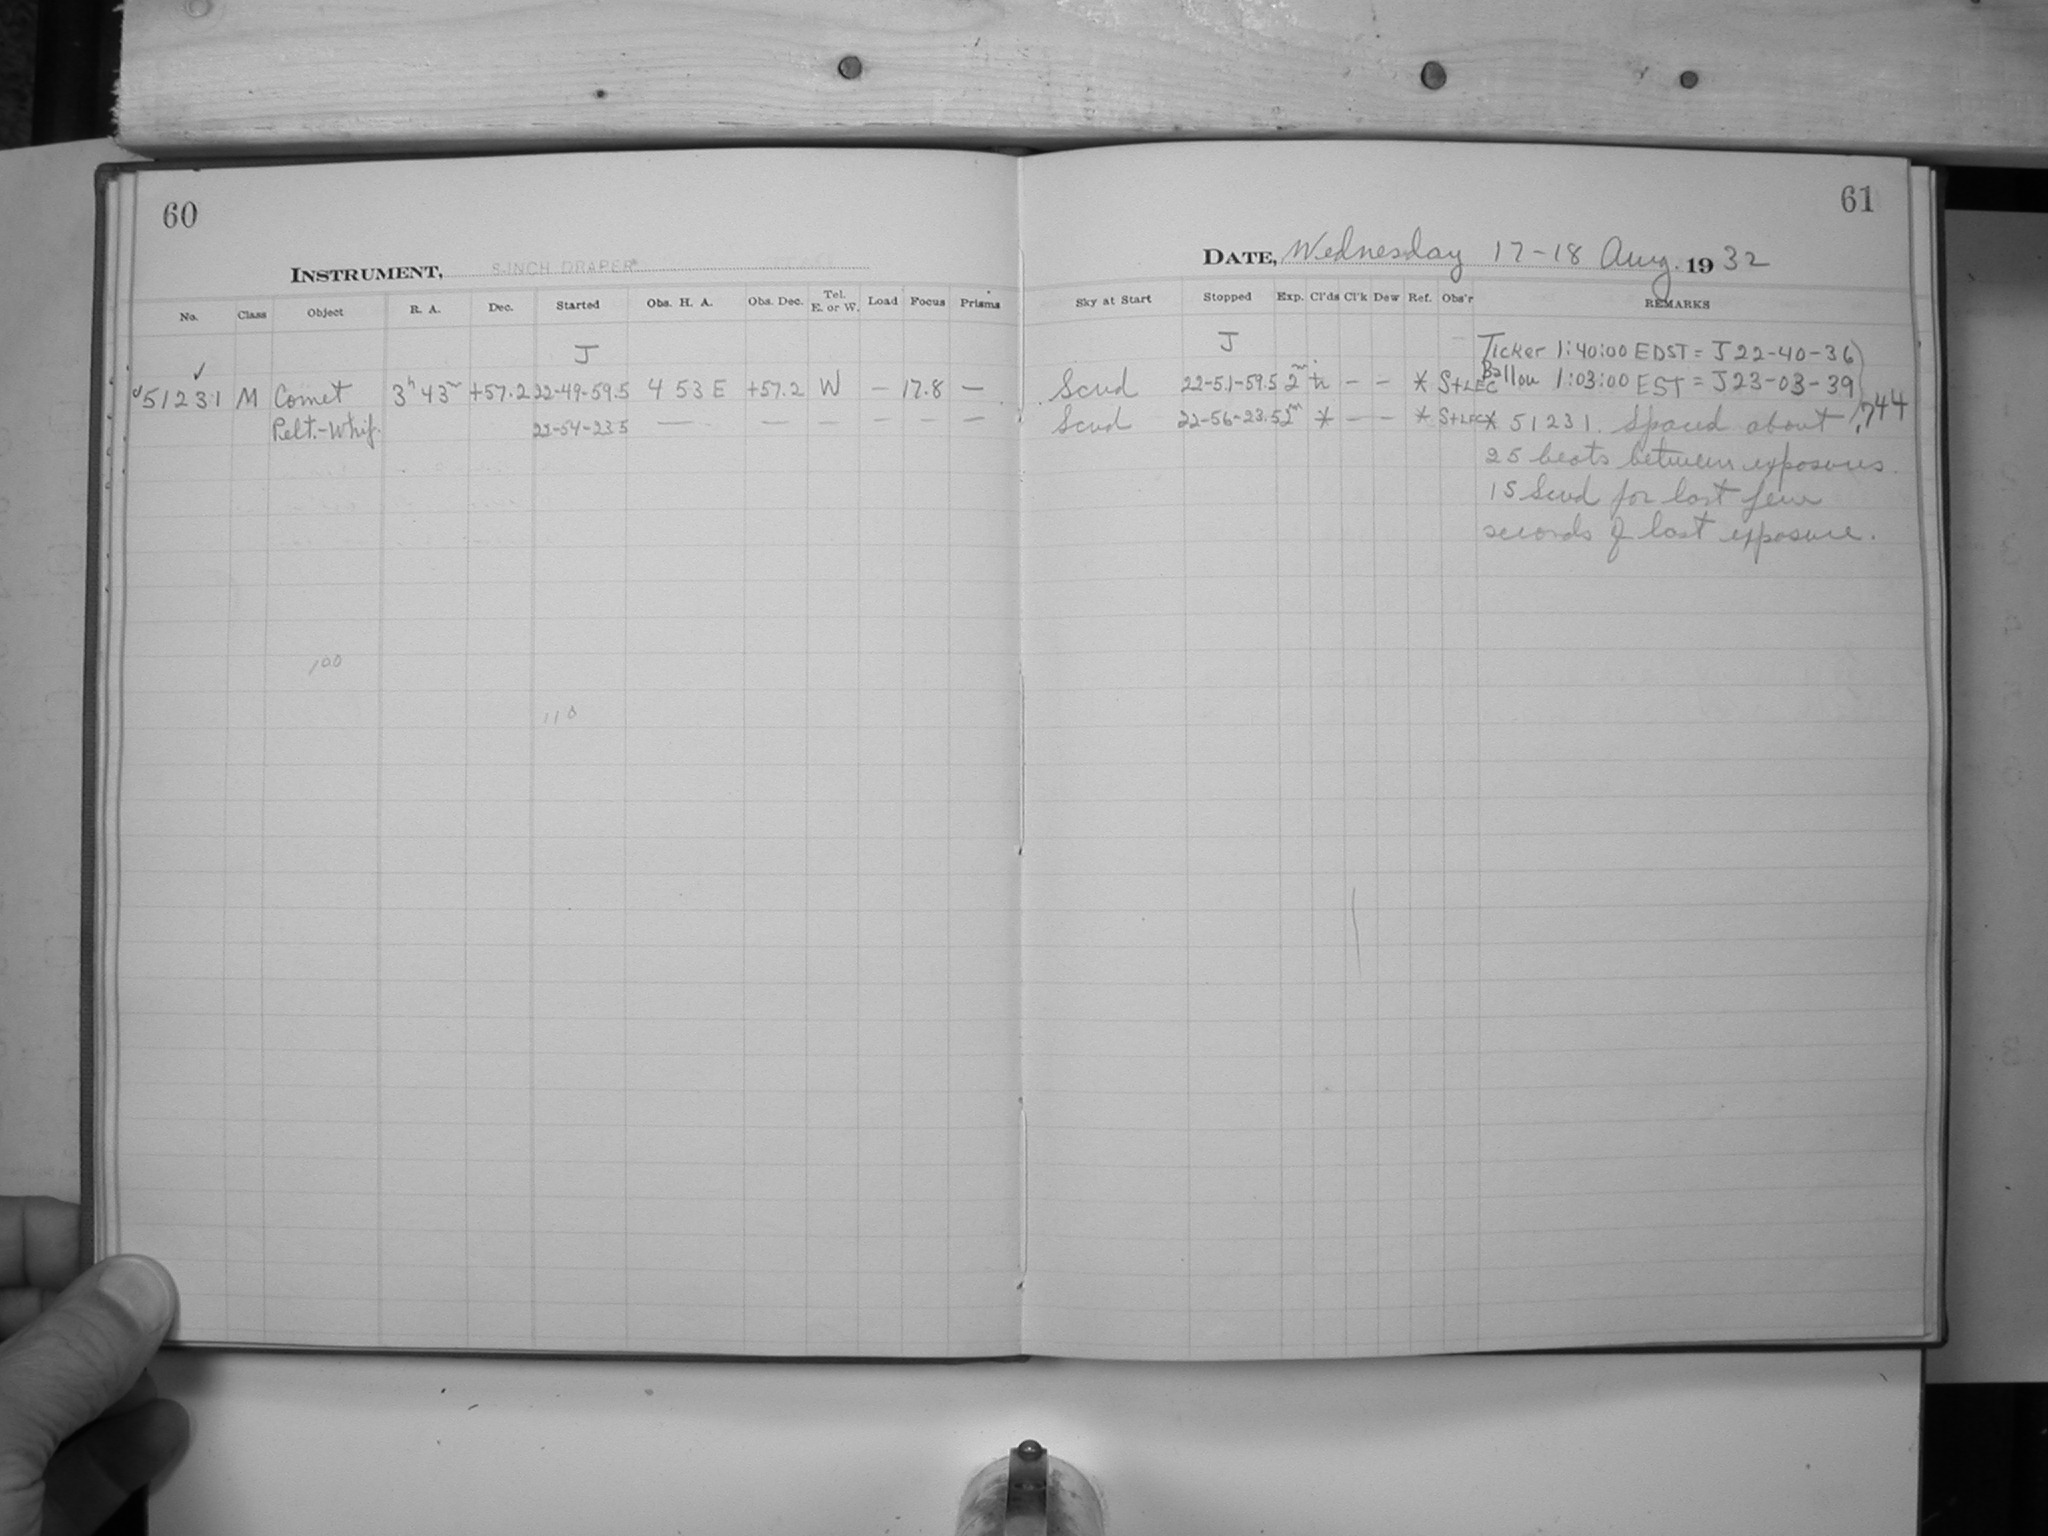 60
INSTRUMENT, 8-INCH DRAPER
No. Class Object R. A. Dec. Started Obs. H. A. Obs. Dec. Tel. E. or W. Load Focus Prisms
J
✓
51231 M Comet 3h 43m +57.2 22-49-59.5 4 53 E +57.2 W — 17.8 —
Pelt.-Whip. 22-54-23.5 — — — — — —
100
110
61
DATE, Wednesday 17-18 Aug. 1932
Sky at Start Stopped Exp. Cl'ds Cl'k Dew Ref. Obs'r REMARKS
J
Scud 22-51-59.5 2m — — * S+LEC
Scud 22-56-23.5 2m * — — * S+LEC
Ticker 1:40:00 EDST = J 22-40-36
Ballou 1:03:00 EST = J 23-03-39
.744
* 51231. Spaced about
25 beats between exposures.
15 Scud for last few
seconds of last exposure.